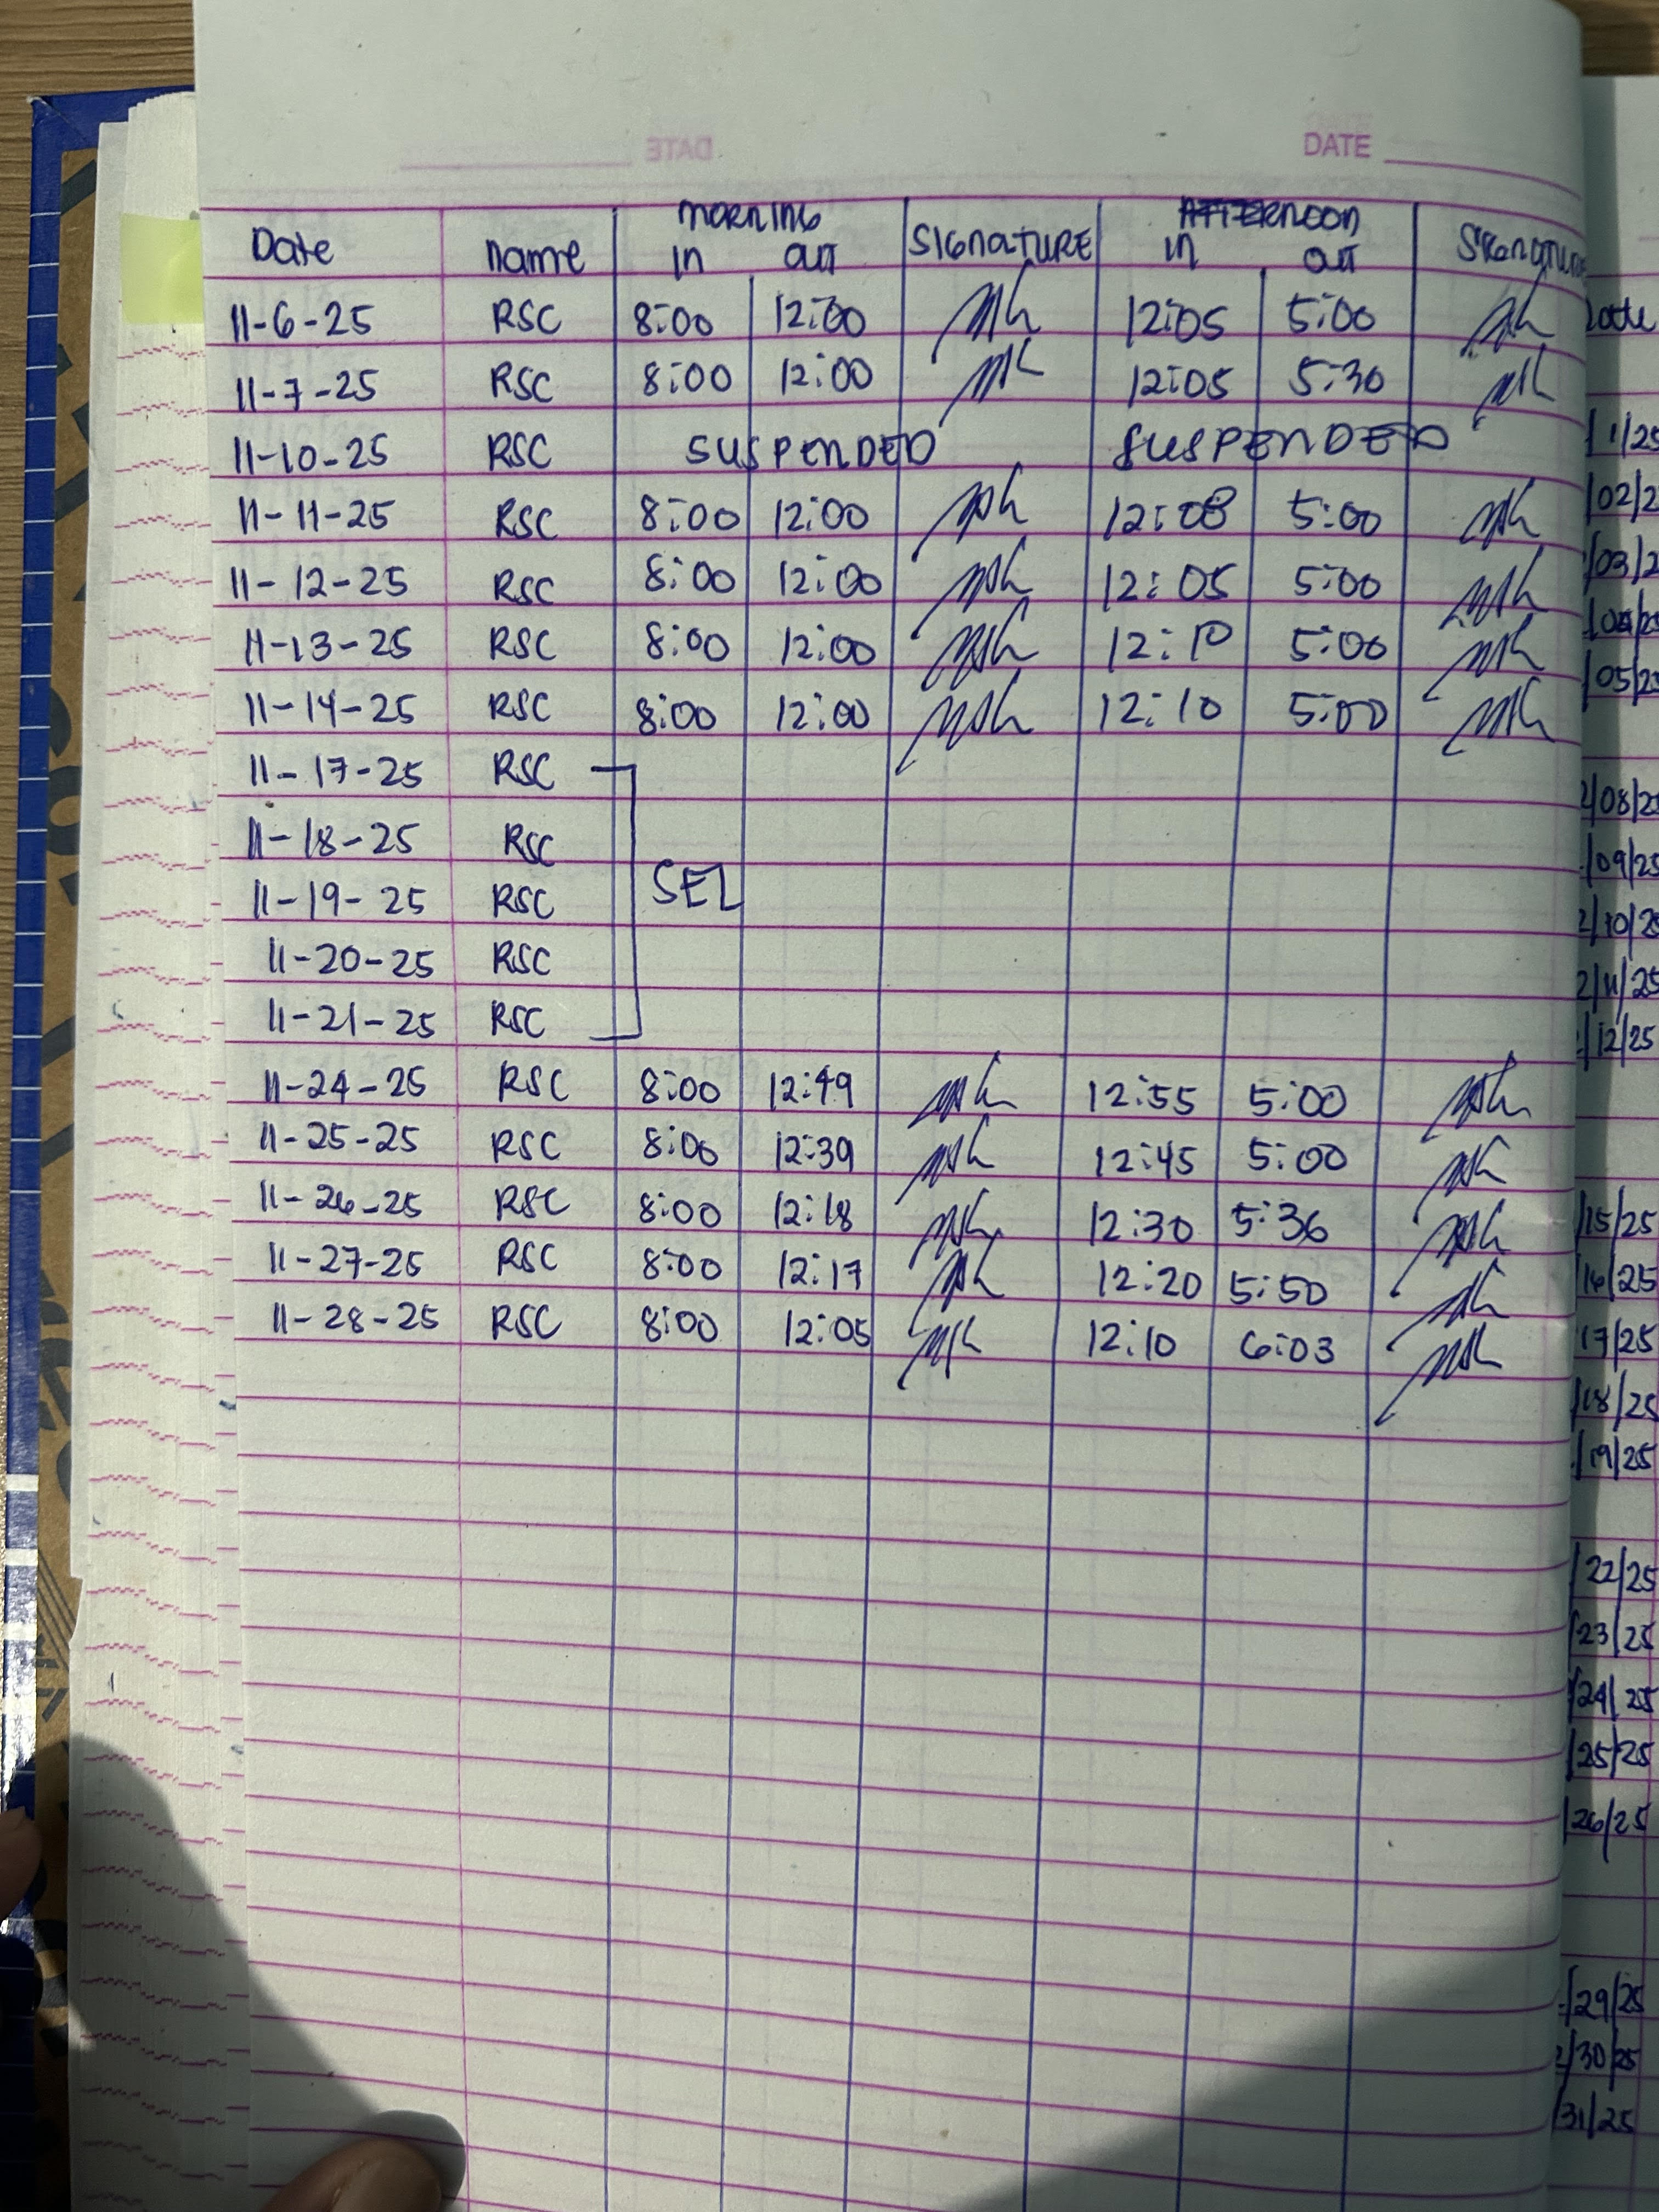 DATE
DATE
MORNING AFTERNOON
Date name in out SIGNATURE in out SIGNATURE
11-6-25 RSC 8:00 12:00 12:05 5:00
11-7-25 RSC 8:00 12:00 12:05 5:30
11-10-25 RSC SUSPENDED SUSPENDED
11-11-25 RSC 8:00 12:00 12:08 5:00
11-12-25 RSC 8:00 12:00 12:05 5:00
11-13-25 RSC 8:00 12:00 12:10 5:00
11-14-25 RSC 8:00 12:00 12:10 5:00
11-17-25 RSC
11-18-25 RSC
11-19-25 RSC SEL
11-20-25 RSC
11-21-25 RSC
11-24-25 RSC 8:00 12:49 12:55 5:00
11-25-25 RSC 8:00 12:39 12:45 5:00
11-26-25 RSC 8:00 12:18 12:30 5:36
11-27-25 RSC 8:00 12:17 12:20 5:50
11-28-25 RSC 8:00 12:05 12:10 6:03
/08/2
/09/25
/12/25
/15/25
/16/25
17/25
/18/25
/19/25
/22/25
/23/25
/24/25
/25/25
/26/25
/29/25
/30/25
/31/25